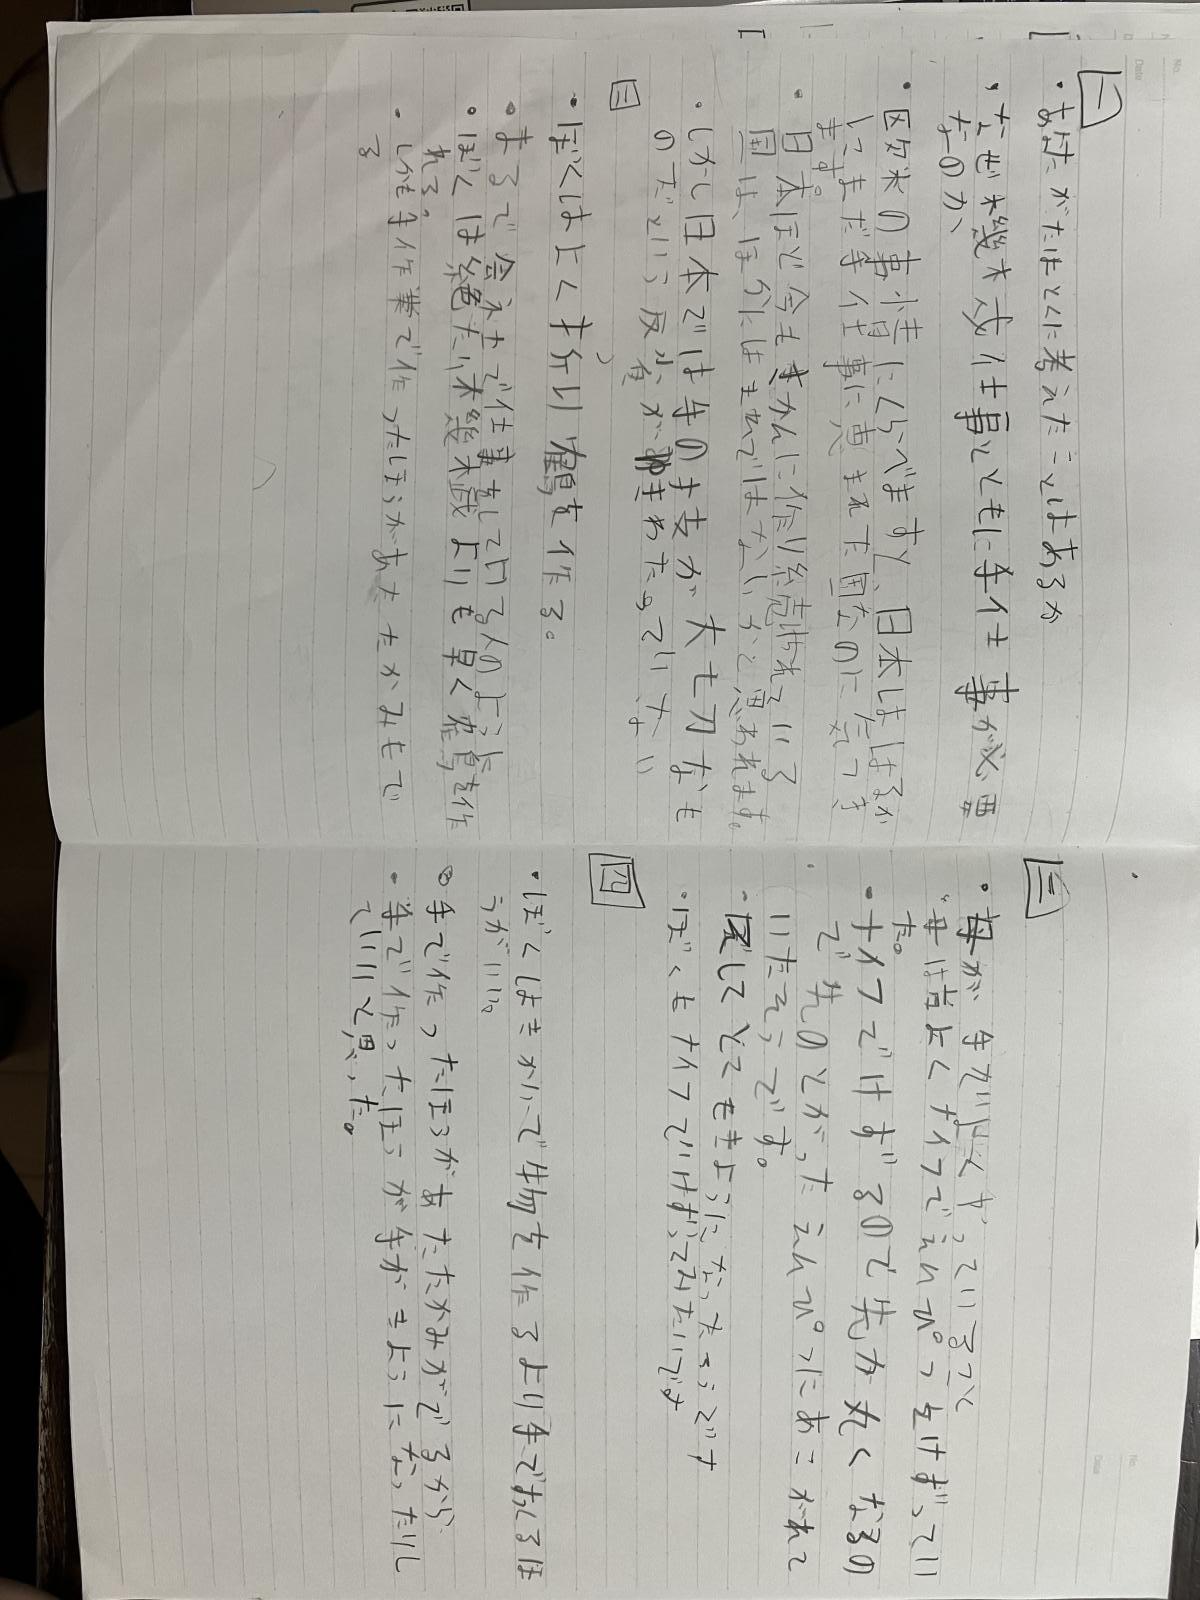 二
・あなたがたはとくに考えたことはあるか
・なぜ機械仕事とともに手仕事が必要
なのか
・区欠米の事情にくらべますと、日本ははるか
にまだ手仕事に恵まれた国なのに気つき
ます。
・日本ほど今もさかんに作り続けられている
国は、ほかにはまれではないかと思われます。
・しかし日本では手の技が大切なも
のだという反省が
わたっていない
三
・ぼくはよく折り鶴を作る。
・まるで会社で仕事をしている人のように
・ぼくは絶たい機械よりも早く鶴を作
れる。
・しかも手作業で作ったほうがあたたかみもで
る
三
・母が手がいよくやっているって
・母は昔よくナイフでえんぴつをけずってい
た。
・ナイフでけずるので先が丸くなるの
で先のとがったえんぴつにあこがれて
いたそうです。
・そしてとてもきようになったそうです
・ぼくもナイフでけずってみたいです
四
・ぼくはきかいで物を作るより手でおくるほ
うがいい。
・手で作ったほうがあたたかみがでるから
・手で作ったほうが手がきようになったりし
ていいと思った。